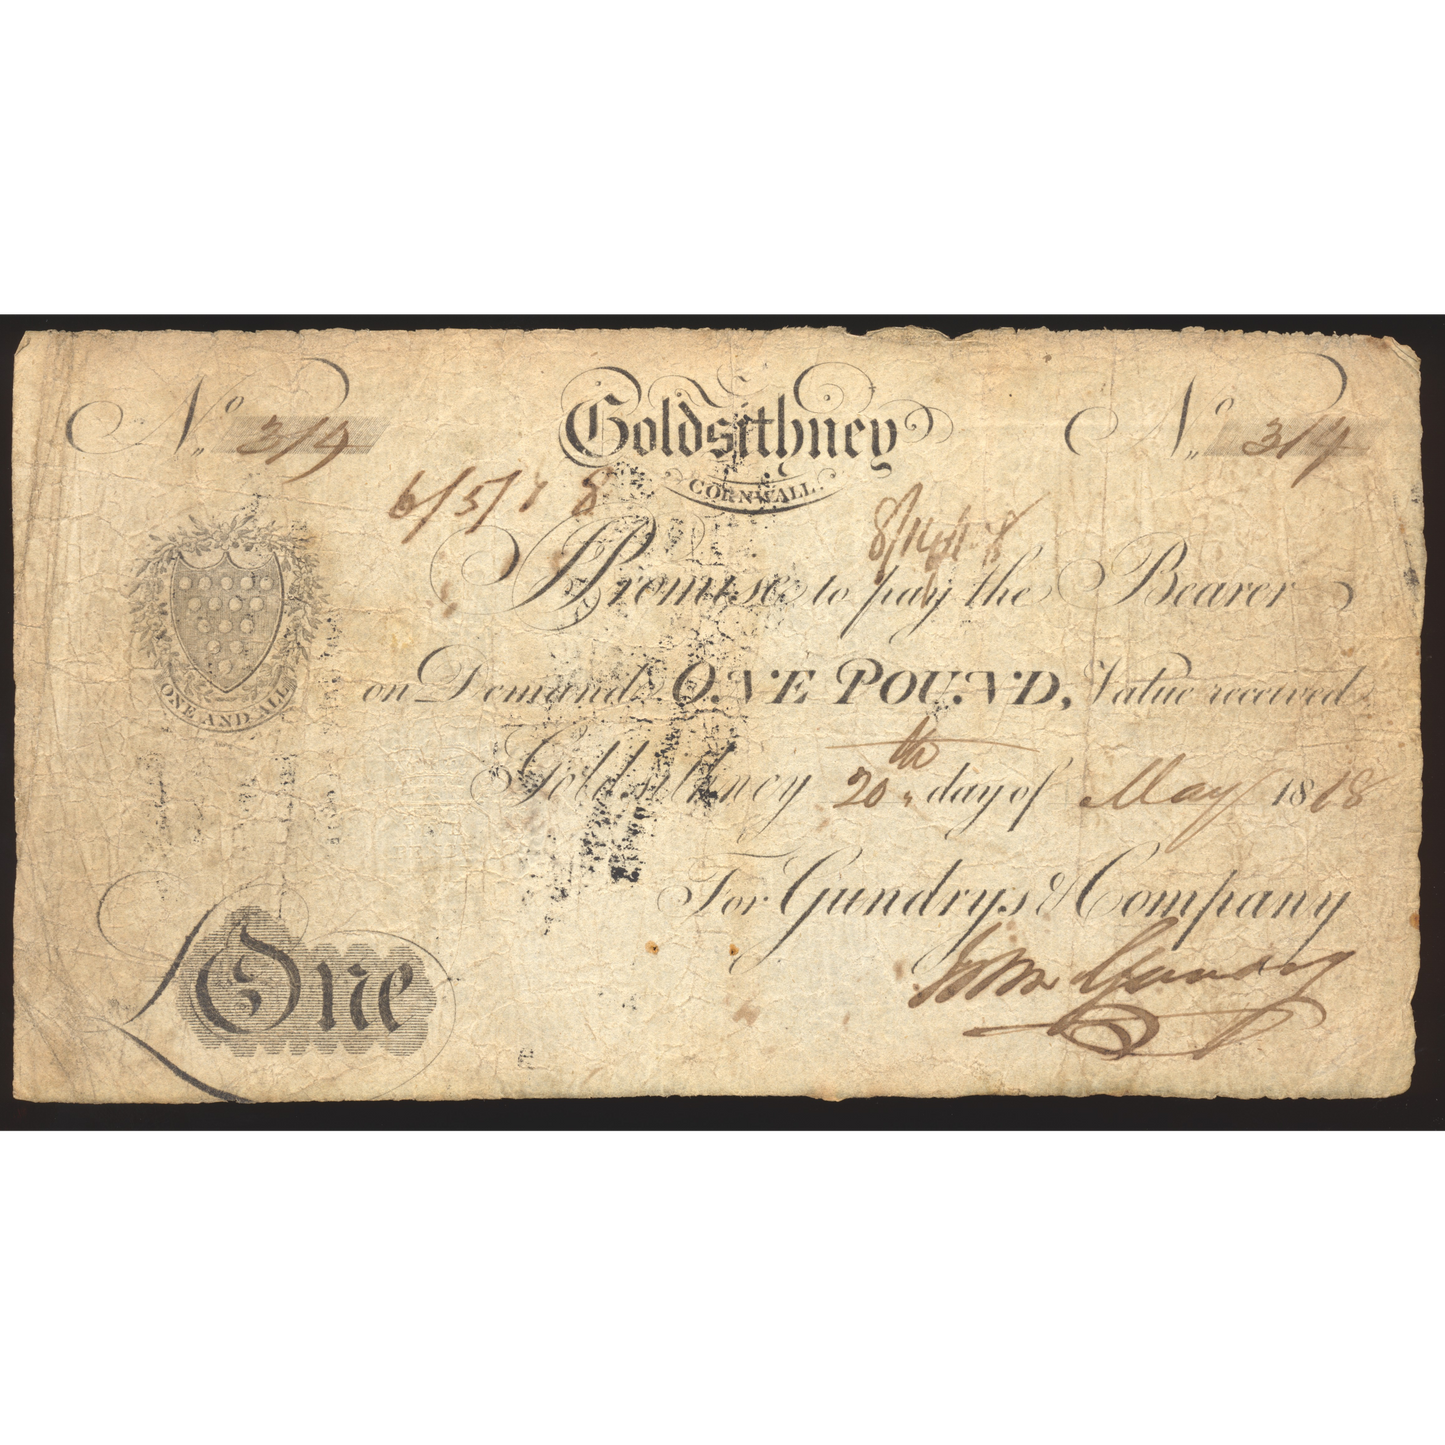 No. 319 Goldsithney No. 319
CORNWALL.
6/5/18
I Promise to pay the Bearer
on Demand ONE POUND, Value received
ONE AND ALL
Goldsithney 20th day of May 1818
For Gundrys & Company
John Gundry
£ One